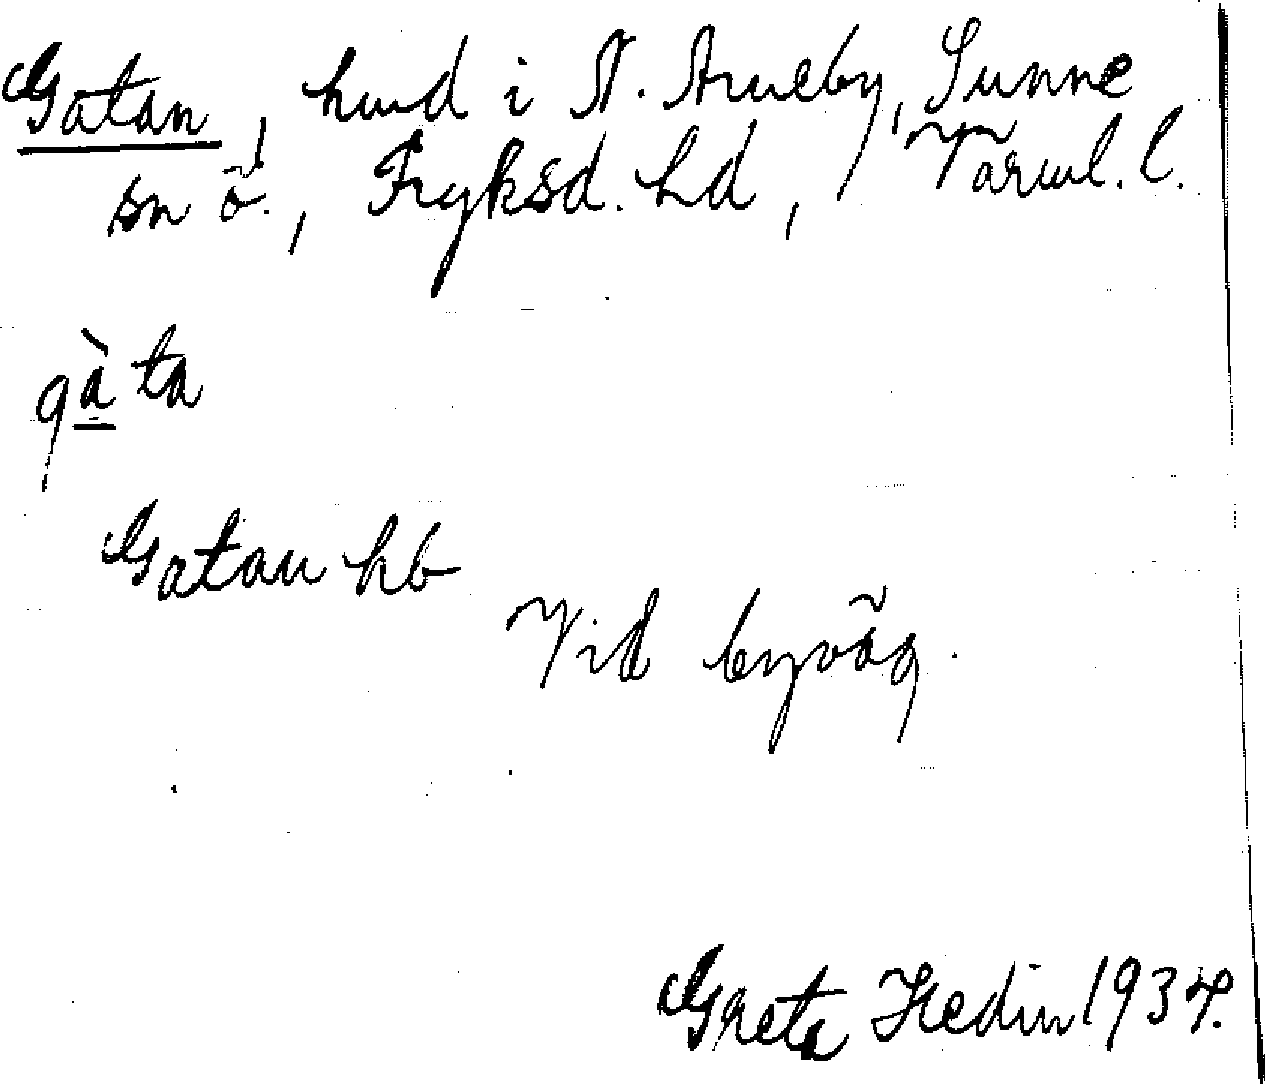 Gatan, hmd i N. Åmeby, Sunne
sn ö., Fryksd. hd, Värml. l.
gàta
Gatan hb
Vid byväg.
Greta Hedin 1934.